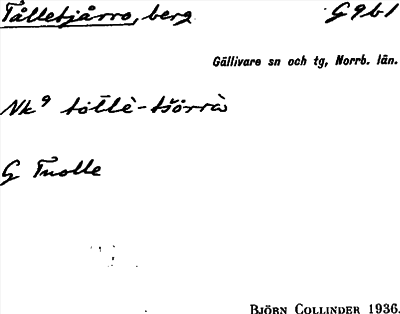 Tålletjårro, berg G 9 b 1
Gällivare sn och tg, Norrb. län.
Nk⁹ tòt̄l̀è-tšòrrà
G Tuolle
BJÖRN COLLINDER 1936.